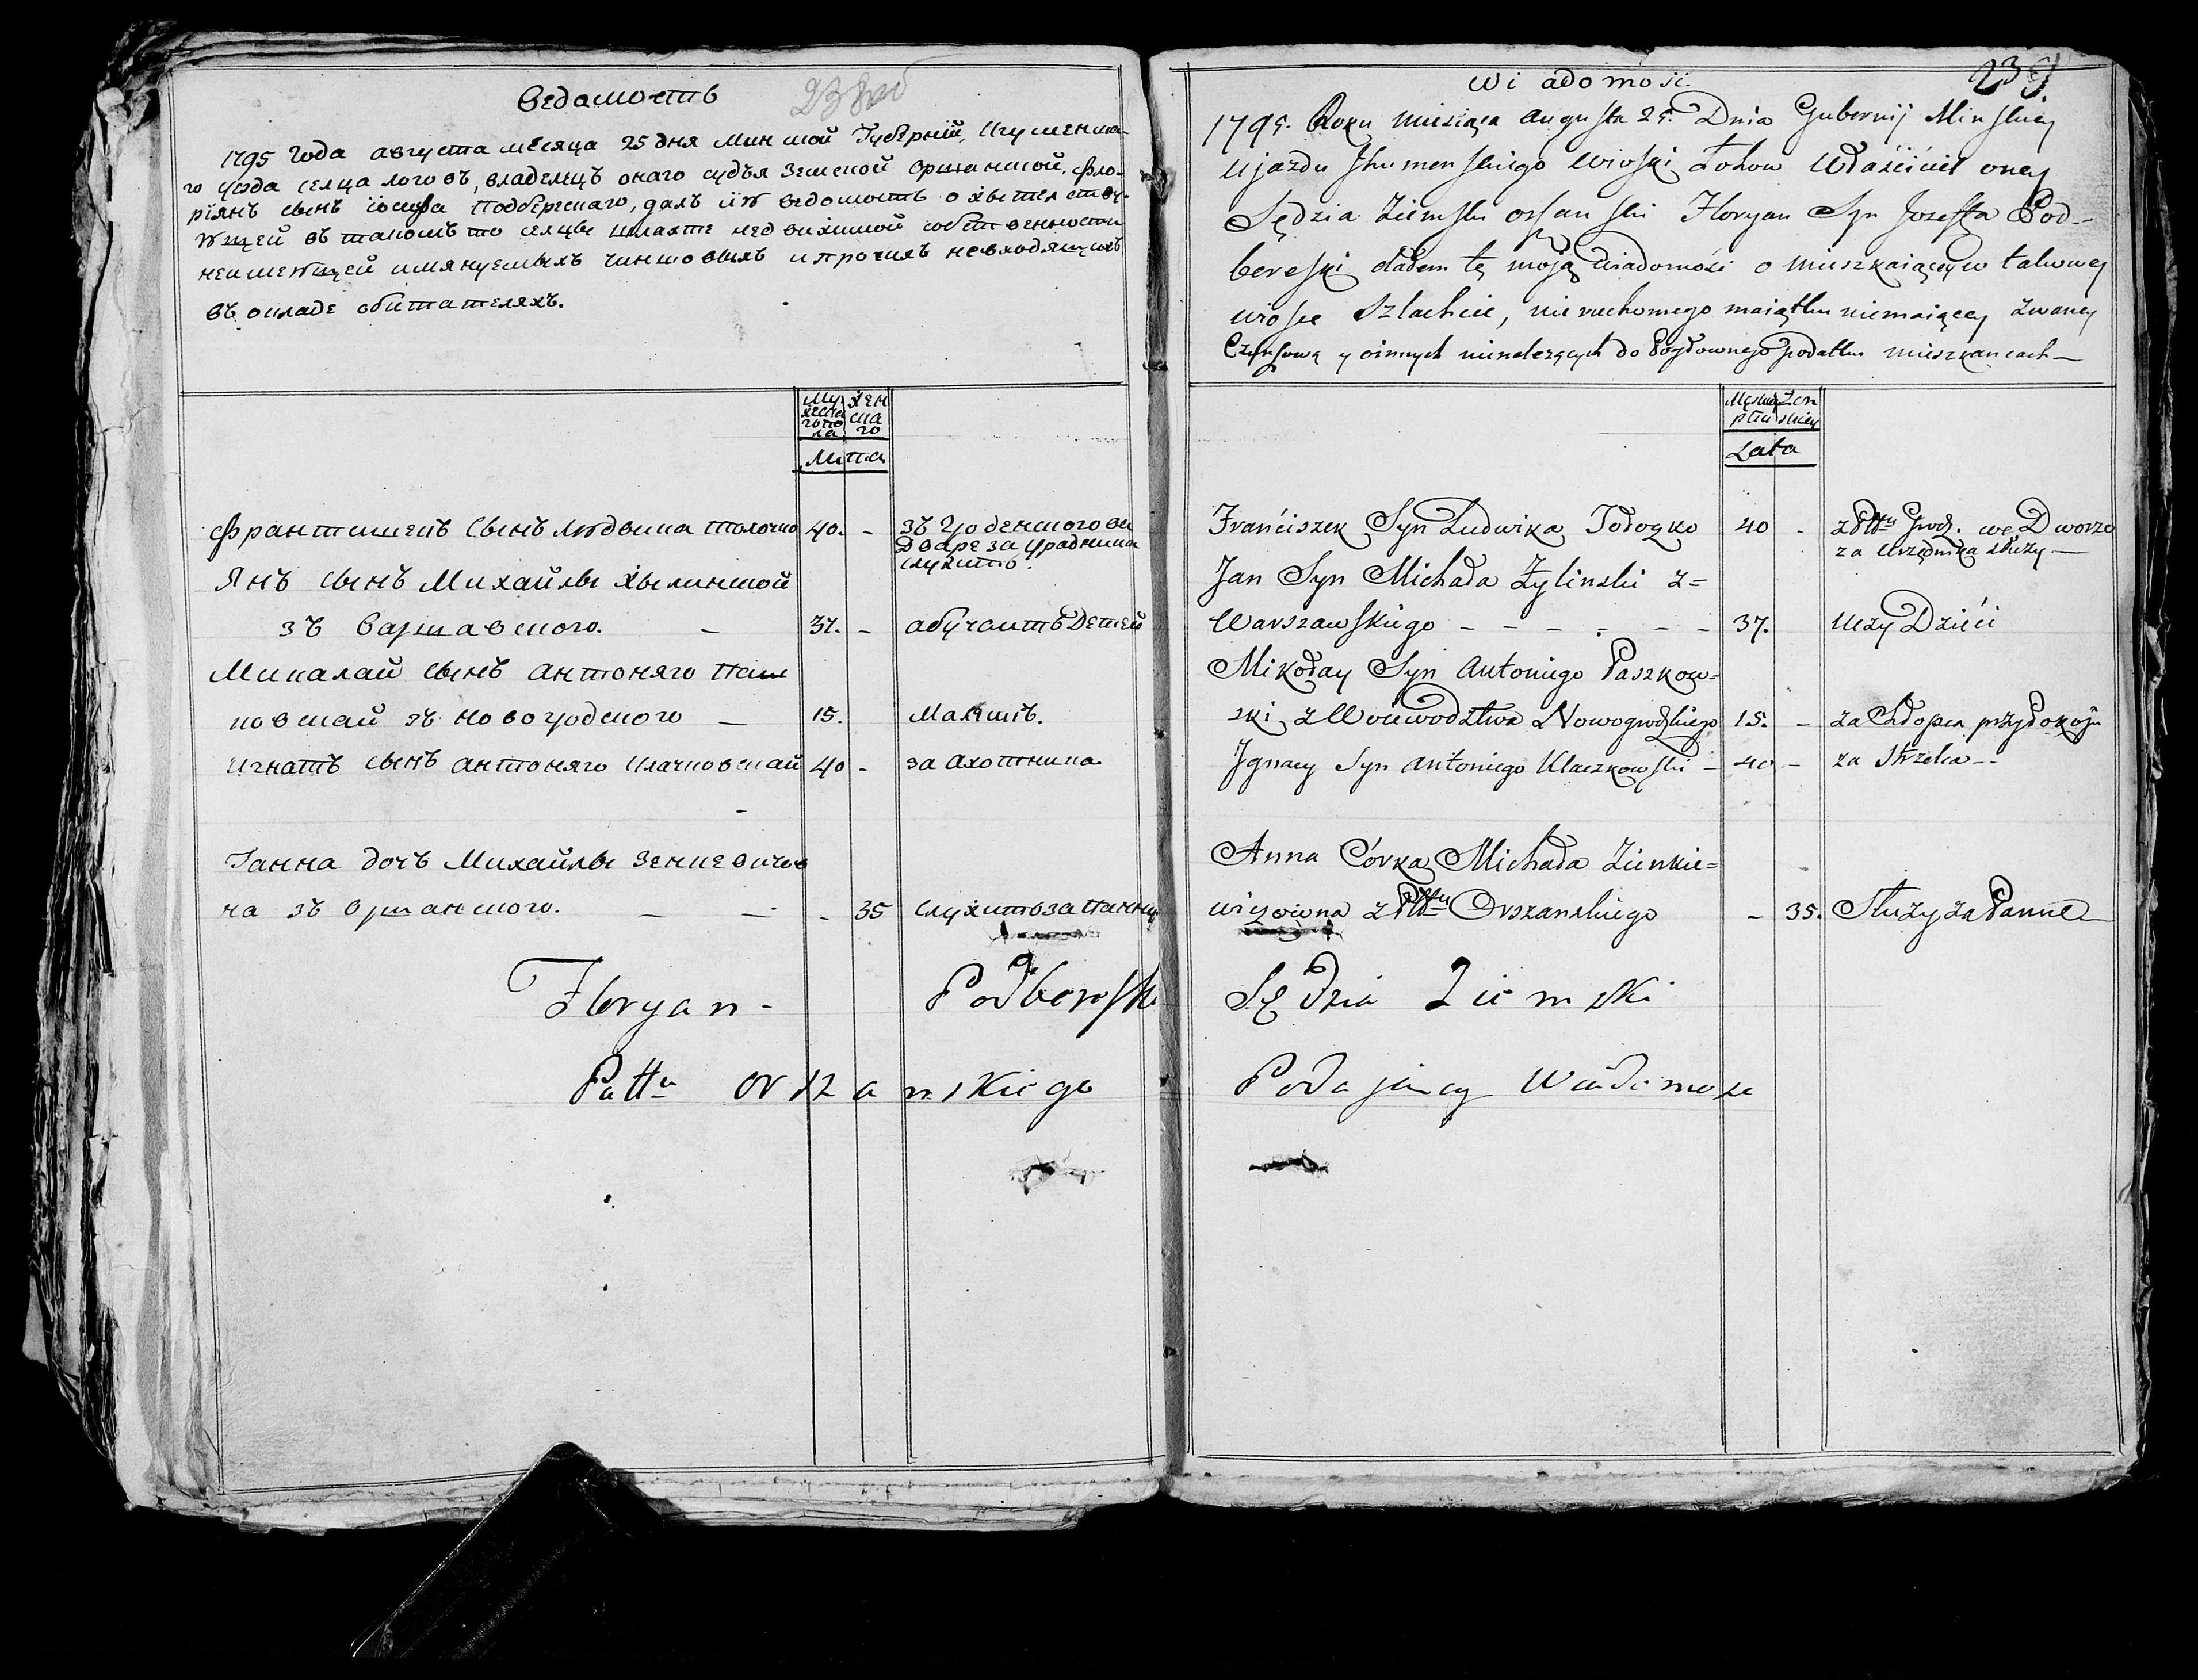 Ведамость
238об
1795 года августа месяца 25 дня минской Губерній, Игуменска-
го уезда селца логовъ, владелецъ онаго судья Земской Оршанской, Фло-
ріянъ сынъ іосифа Подберескаго, далъ сію ведомость о жителствꙋ-
ющей въ такомъ то селцы шляхте недвижимой собственности
неимеющей имянуемыхъ чиншовыхъ и прочихъ невходящихъ
въ окладе обитателяхъ.
Му
жеска
го по
ла
жен
ска
го
Лита
Франтишекъ сынъ людвика толочко 40. - зъ Гроденского ве
Дваре за Урадника
служить.
Янъ сынъ Михайлы жылинской
зъ варшавского. - 37. - абучаитъ Детей
Микалай сынъ антоняго Паш
ковскай зъ новогродского - 15. Малятъ.
Игнатъ сынъ антоняго Клачковскай 40 - за ахотника
Ганна дочъ Михайлы Зенкевичов
на зъ Оршанского. - - - 35 служитъ за Панну
Floryan - Podbereski
Pattu orszanskiego
Wiadomość.
239
1795. Roku miesiąca Augusta 25. Dnia Gubernij Minskiey
Ujazdu Jhumenskiego wioski Łohow Właściciel oney
Sędzia Ziemski orszanski Floryan Syn Jozeffa Pod-
bereski dałem tę moją wiadomość o mieszkaiącey w takowey
wiosce Szlachcie, nieruchomego maiątku niemaiącey zwaney
Czynszową y oinnych nienależących do Pogłownego podatku mieszkancach -
Męskiey
płci
Zen
skiey
Lata
Franćiszek Syn Ludwika Tołoczko 40 - z Pttu Grodz. we Dworze
za Urzędnika służy -
Jan Syn Michała Żylinski z =
Warszawskiego - - - - - - 37. Uczy Dzieći
Mikołay Syn Antoniego Paszkow =
ski z Woiewodztwa Nowogrodzkiego 15. - za Chłopca przy Pokoju
Jgnacy Syn Antoniego Klaczkowski - 40 - za Strzelca -
Anna Córka Michała Zienkie =
wiczowna z Pttu Orszanskiego - 35. Służy za Pannę -
Sędzia Ziemski
Podajãcy Wiadomosc